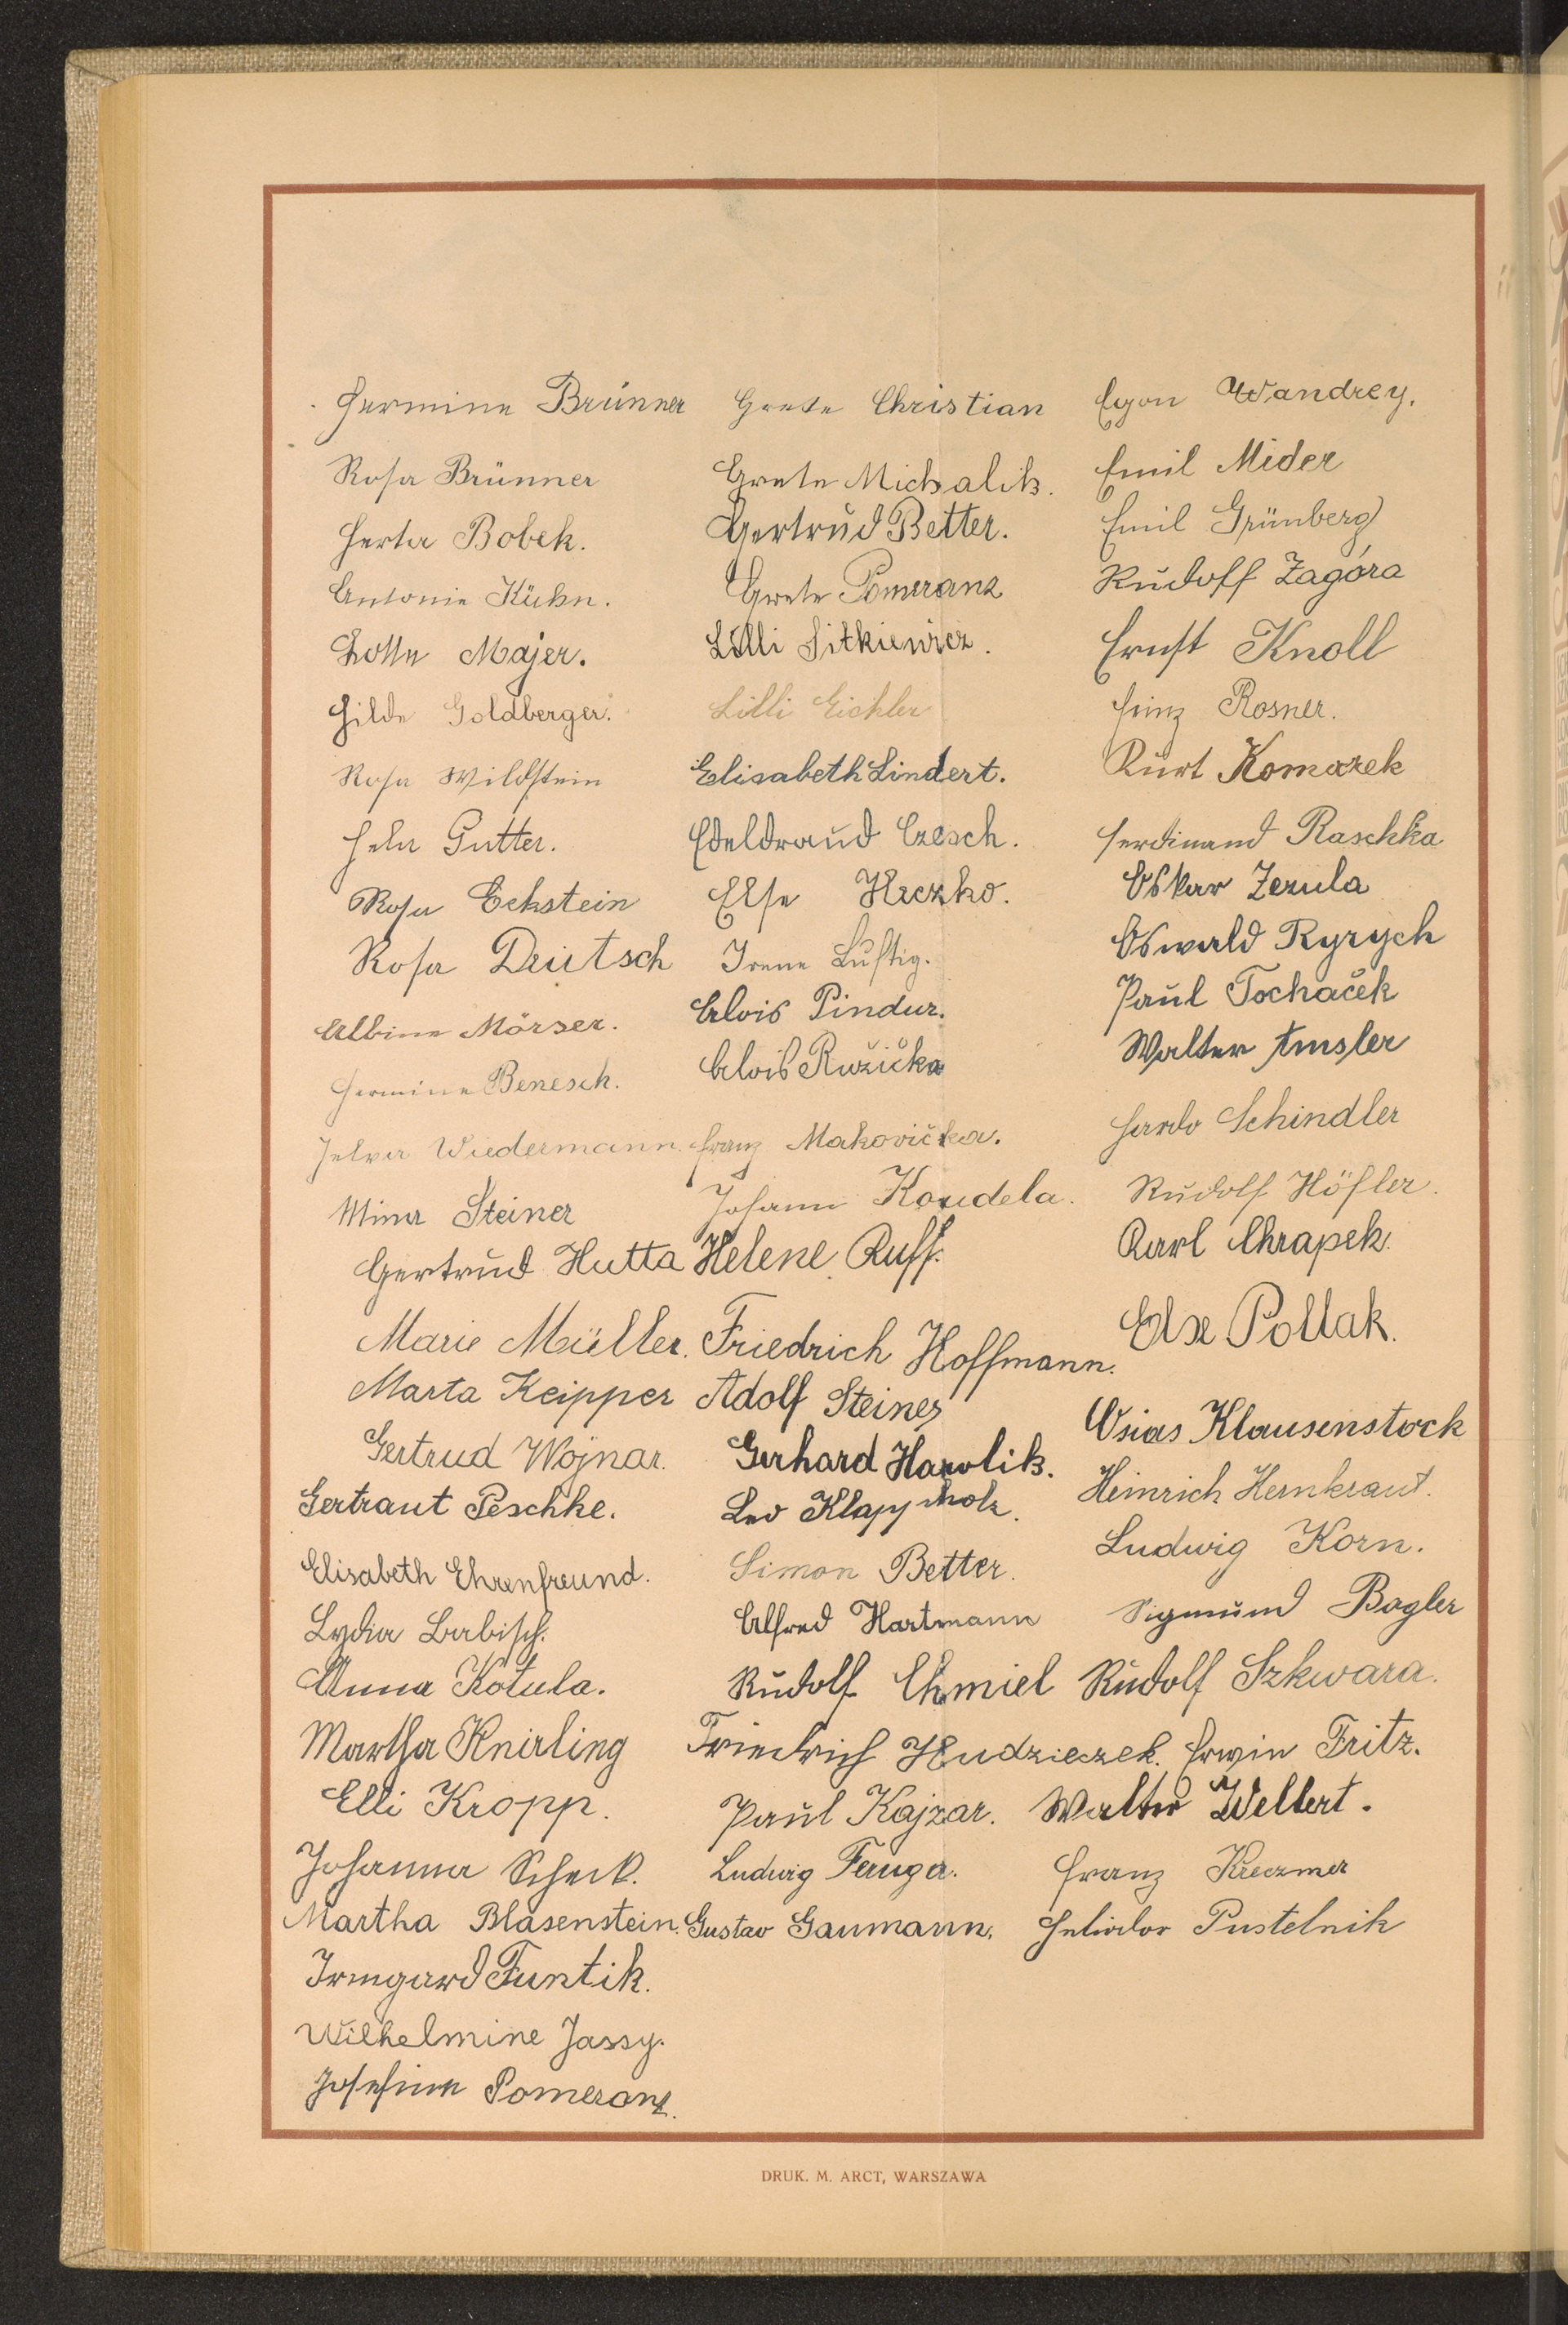 Hermine Brünner
Rosa Brünner
Herta Bobek.
Antonie Kühn.
Lotte Majer.
Hilde Goldberger.
Rosa Wildstein
Hela Gutter.
Rosa Eckstein
Rosa Deutsch
Albine Mörser.
Hermine Benesch.
Wiedermann.
Mina Steiner
Gertrud Hutta
Marie Müller.
Marta Keipper
Gertrud Wojnar.
Gertraut Peschke.
Elisabeth Ehrenfreund.
Lydia Babisch.
Anna Kotula.
Martha Knirling
Elli Kropp.
Johanna Scheck.
Martha Blasenstein.
Irmgard Funtik.
Wilhelmine Jassy.
Josefine Pomeranz.
Grete Christian
Grete Michalik.
Gertrud Better.
Grete Pomeranz
Lilli Sitkiewicz.
Lilli Eichler
Elisabeth Lindert.
Edeldraud Czesch.
Else Heczko.
Irene Luftig.
Alois Pindur.
Alois Ružička
Franz Makovička.
Johann Koudela.
Helene Ruff.
Friedrich Hoffmann.
Adolf Steiner
Gerhard Hawlik.
Leo Klappholz.
Simon Better.
Alfred Hartmann
Rudolf Chmiel
Friedrich Hudzieczek.
Paul Kajzar.
Ludwig Feruga.
Gustav Gaumann.
Egon Wandrey.
Emil Mider
Emil Grünberg
Rudolf Zagóra
Ernst Knoll
Heinz Rosner.
Kurt Komarek
Ferdinand Raschka
Oskar Zezula
Oswald Ryrych
Paul Tochaček
Walter Amsler
Hardo Schindler
Rudolf Höfler.
Karl Chrapek.
Else Pollak.
Osias Klausenstock
Heinrich Hernkraut.
Ludwig Korn.
Sigmund Bogler
Rudolf Szkwara.
Erwin Fritz.
Walter Wellert.
Franz Kreczmer
Heliodor Pustelnik
DRUK. M. ARCT, WARSZAWA